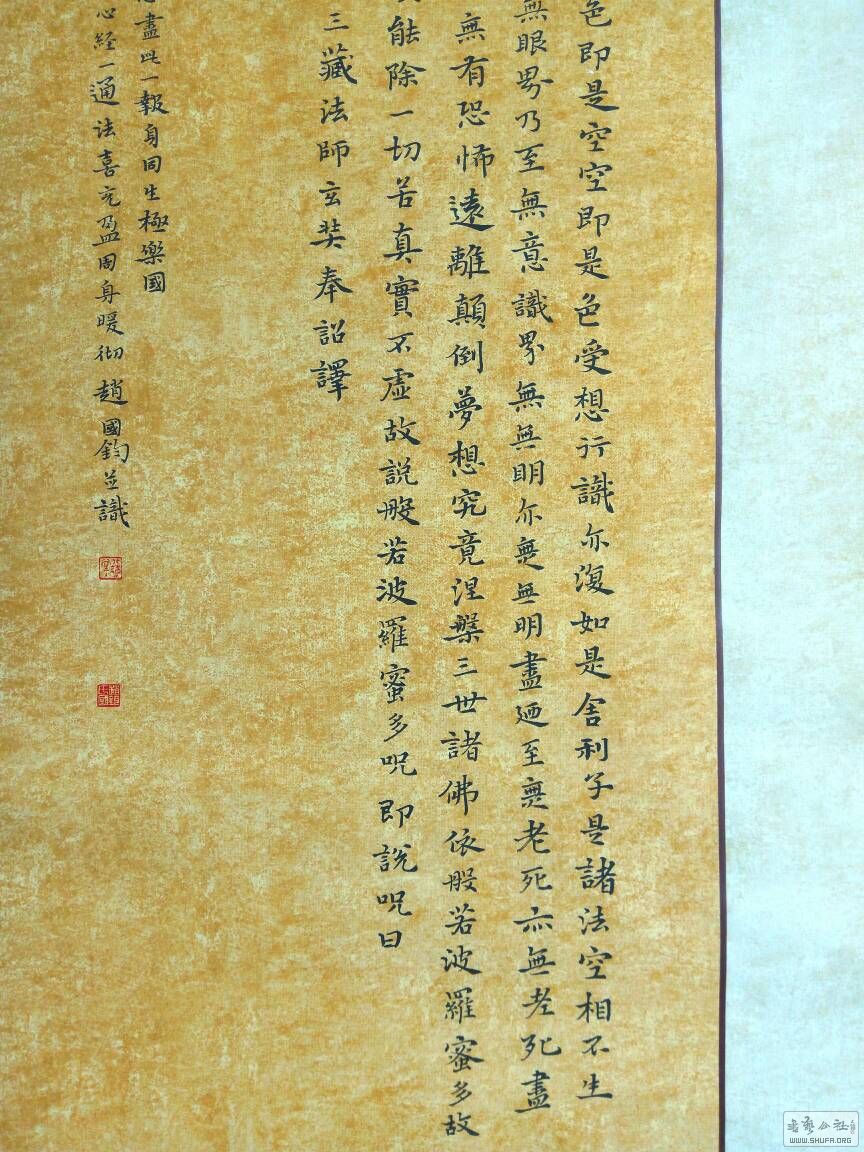 色即是空空即是色受想行識亦復如是舍利子是諸法空相不生
無眼界乃至無意識界無無明亦無無明盡廼至無老死亦無老死盡
無有恐怖遠離顛倒夢想究竟涅槃三世諸佛依般若波羅蜜多故
能除一切苦真實不虛故説般若波羅蜜多呪即説呪曰
三藏法師玄奘奉詔譯
盡此一報身同生極樂國
心經一通法喜充盈周身暖彻趙國鈞並識
WWW.SHUFA.ORG